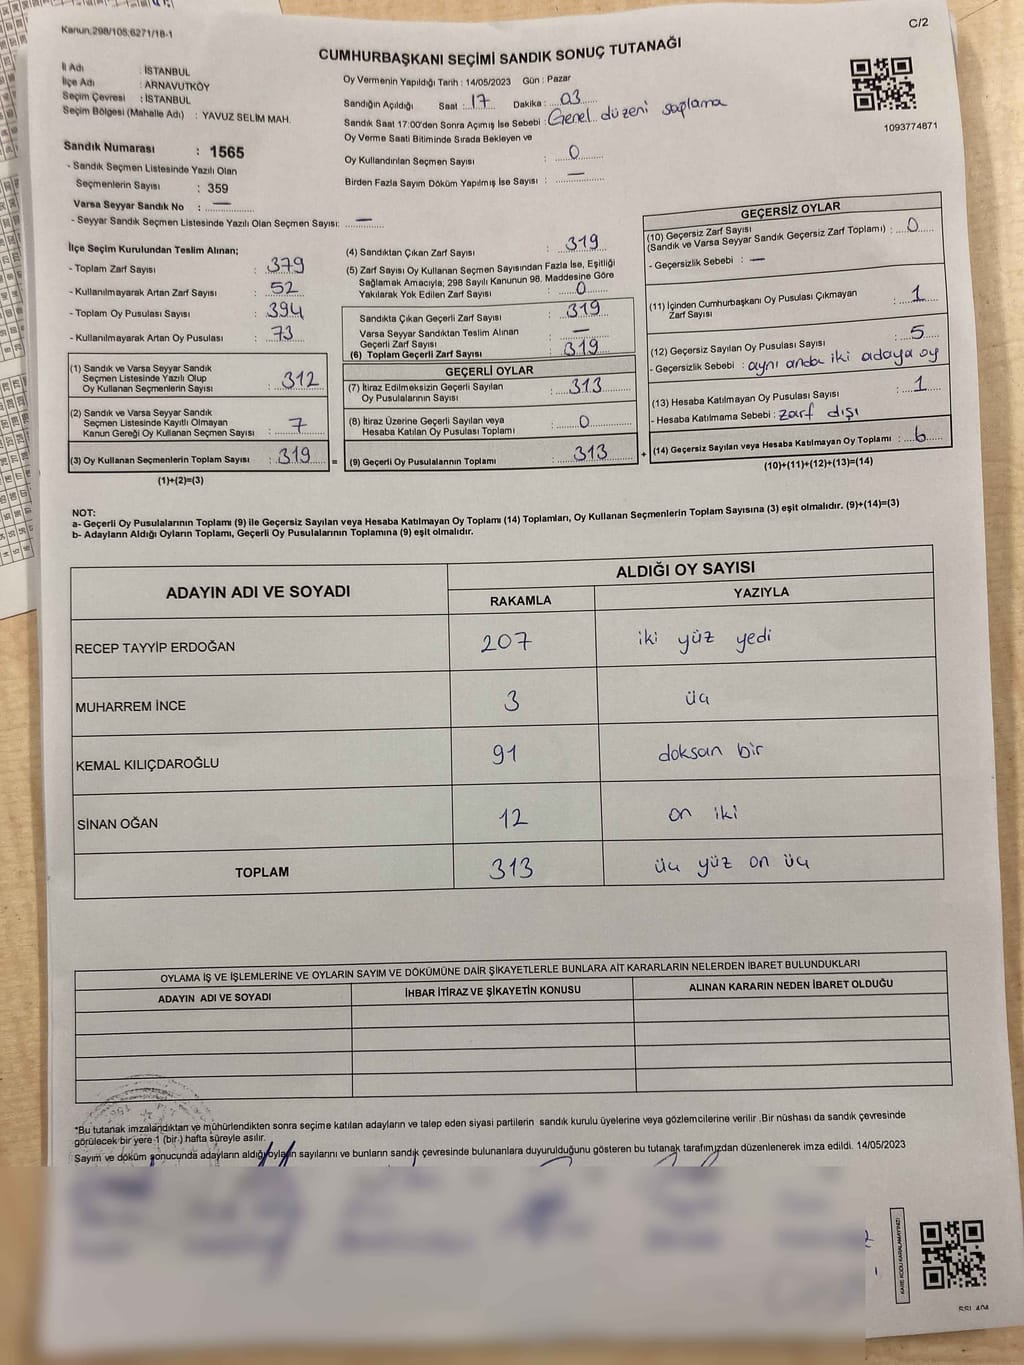 Kanun.298/105,6271/18-1
C/2
CUMHURBAŞKANI SEÇİMİ SANDIK SONUÇ TUTANAĞI
İl Adı : İSTANBUL
İlçe Adı : ARNAVUTKÖY
Seçim Çevresi : İSTANBUL
Seçim Bölgesi (Mahalle Adı) : YAVUZ SELİM MAH.
Oy Vermenin Yapıldığı Tarih : 14/05/2023 Gün : Pazar
Sandığın Açıldığı Saat : 17 Dakika : 03
Sandık Saat 17:00'den Sonra Açımış İse Sebebi : Genel düzeni saplama
Oy Verme Saati Bitiminde Sırada Bekleyen ve
Oy Kullandırılan Seçmen Sayısı : 0
Birden Fazla Sayım Döküm Yapılmış İse Sayısı : —
1093774871
Sandık Numarası : 1565
- Sandık Seçmen Listesinde Yazılı Olan
Seçmenlerin Sayısı : 359
Varsa Seyyar Sandık No : —
- Seyyar Sandık Seçmen Listesinde Yazılı Olan Seçmen Sayısı: —
İlçe Seçim Kurulundan Teslim Alınan;
- Toplam Zarf Sayısı : 379
- Kullanılmayarak Artan Zarf Sayısı : 52
- Toplam Oy Pusulası Sayısı : 394
- Kullanılmayarak Artan Oy Pusulası : 73
(1) Sandık ve Varsa Seyyar Sandık
Seçmen Listesinde Yazılı Olup
Oy Kullanan Seçmenlerin Sayısı : 312
(2) Sandık ve Varsa Seyyar Sandık
Seçmen Listesinde Kayıtlı Olmayan
Kanun Gereği Oy Kullanan Seçmen Sayısı : 7
(3) Oy Kullanan Seçmenlerin Toplam Sayısı : 319
(1)+(2)=(3)
(4) Sandıktan Çıkan Zarf Sayısı : 319
(5) Zarf Sayısı Oy Kullanan Seçmen Sayısından Fazla İse, Eşitliği
Sağlamak Amacıyla; 298 Sayılı Kanunun 98. Maddesine Göre
Yakılarak Yok Edilen Zarf Sayısı : 0
Sandıkta Çıkan Geçerli Zarf Sayısı : 319
Varsa Seyyar Sandıktan Teslim Alınan
Geçerli Zarf Sayısı : —
(6) Toplam Geçerli Zarf Sayısı : 319
GEÇERLİ OYLAR
(7) İtiraz Edilmeksizin Geçerli Sayılan
Oy Pusulalarının Sayısı : 313
(8) İtiraz Üzerine Geçerli Sayılan veya
Hesaba Katılan Oy Pusulası Toplamı : 0
= (9) Geçerli Oy Pusulalarının Toplamı : 313
GEÇERSİZ OYLAR
(10) Geçersiz Zarf Sayısı
(Sandık ve Varsa Seyyar Sandık Geçersiz Zarf Toplamı) : 0
- Geçersizlik Sebebi : —
(11) İçinden Cumhurbaşkanı Oy Pusulası Çıkmayan
Zarf Sayısı : 1
(12) Geçersiz Sayılan Oy Pusulası Sayısı : 5
- Geçersizlik Sebebi : aynı anda iki adaya oy
(13) Hesaba Katılmayan Oy Pusulası Sayısı : 1
- Hesaba Katılmama Sebebi : zarf dışı
+ (14) Geçersiz Sayılan veya Hesaba Katılmayan Oy Toplamı : 6
(10)+(11)+(12)+(13)=(14)
NOT:
a- Geçerli Oy Pusulalarının Toplamı (9) ile Geçersiz Sayılan veya Hesaba Katılmayan Oy Toplamı (14) Toplamları, Oy Kullanan Seçmenlerin Toplam Sayısına (3) eşit olmalıdır. (9)+(14)=(3)
b- Adayların Aldığı Oyların Toplamı, Geçerli Oy Pusulalarının Toplamına (9) eşit olmalıdır.
ADAYIN ADI VE SOYADI
ALDIĞI OY SAYISI
RAKAMLA YAZIYLA
RECEP TAYYİP ERDOĞAN 207 iki yüz yedi
MUHARREM İNCE 3 üç
KEMAL KILIÇDAROĞLU 91 doksan bir
SİNAN OĞAN 12 on iki
TOPLAM 313 üç yüz on üç
OYLAMA İŞ VE İŞLEMLERİNE VE OYLARIN SAYIM VE DÖKÜMÜNE DAİR ŞİKAYETLERLE BUNLARA AİT KARARLARIN NELERDEN İBARET BULUNDUKLARI
ADAYIN ADI VE SOYADI İHBAR İTİRAZ VE ŞİKAYETİN KONUSU ALINAN KARARIN NEDEN İBARET OLDUĞU
*Bu tutanak imzalandıktan ve mühürlendikten sonra seçime katılan adayların ve talep eden siyasi partilerin sandık kurulu üyelerine veya gözlemcilerine verilir .Bir nüshası da sandık çevresinde
görülecek bir yere 1 (bir ) hafta süreyle asılır.
Sayım ve döküm sonucunda adayların aldığı oyların sayılarını ve bunların sandık çevresinde bulunanlara duyurulduğunu gösteren bu tutanak tarafımızdan düzenlenerek imza edildi. 14/05/2023
KARE KODU KARALAMAYINIZ!